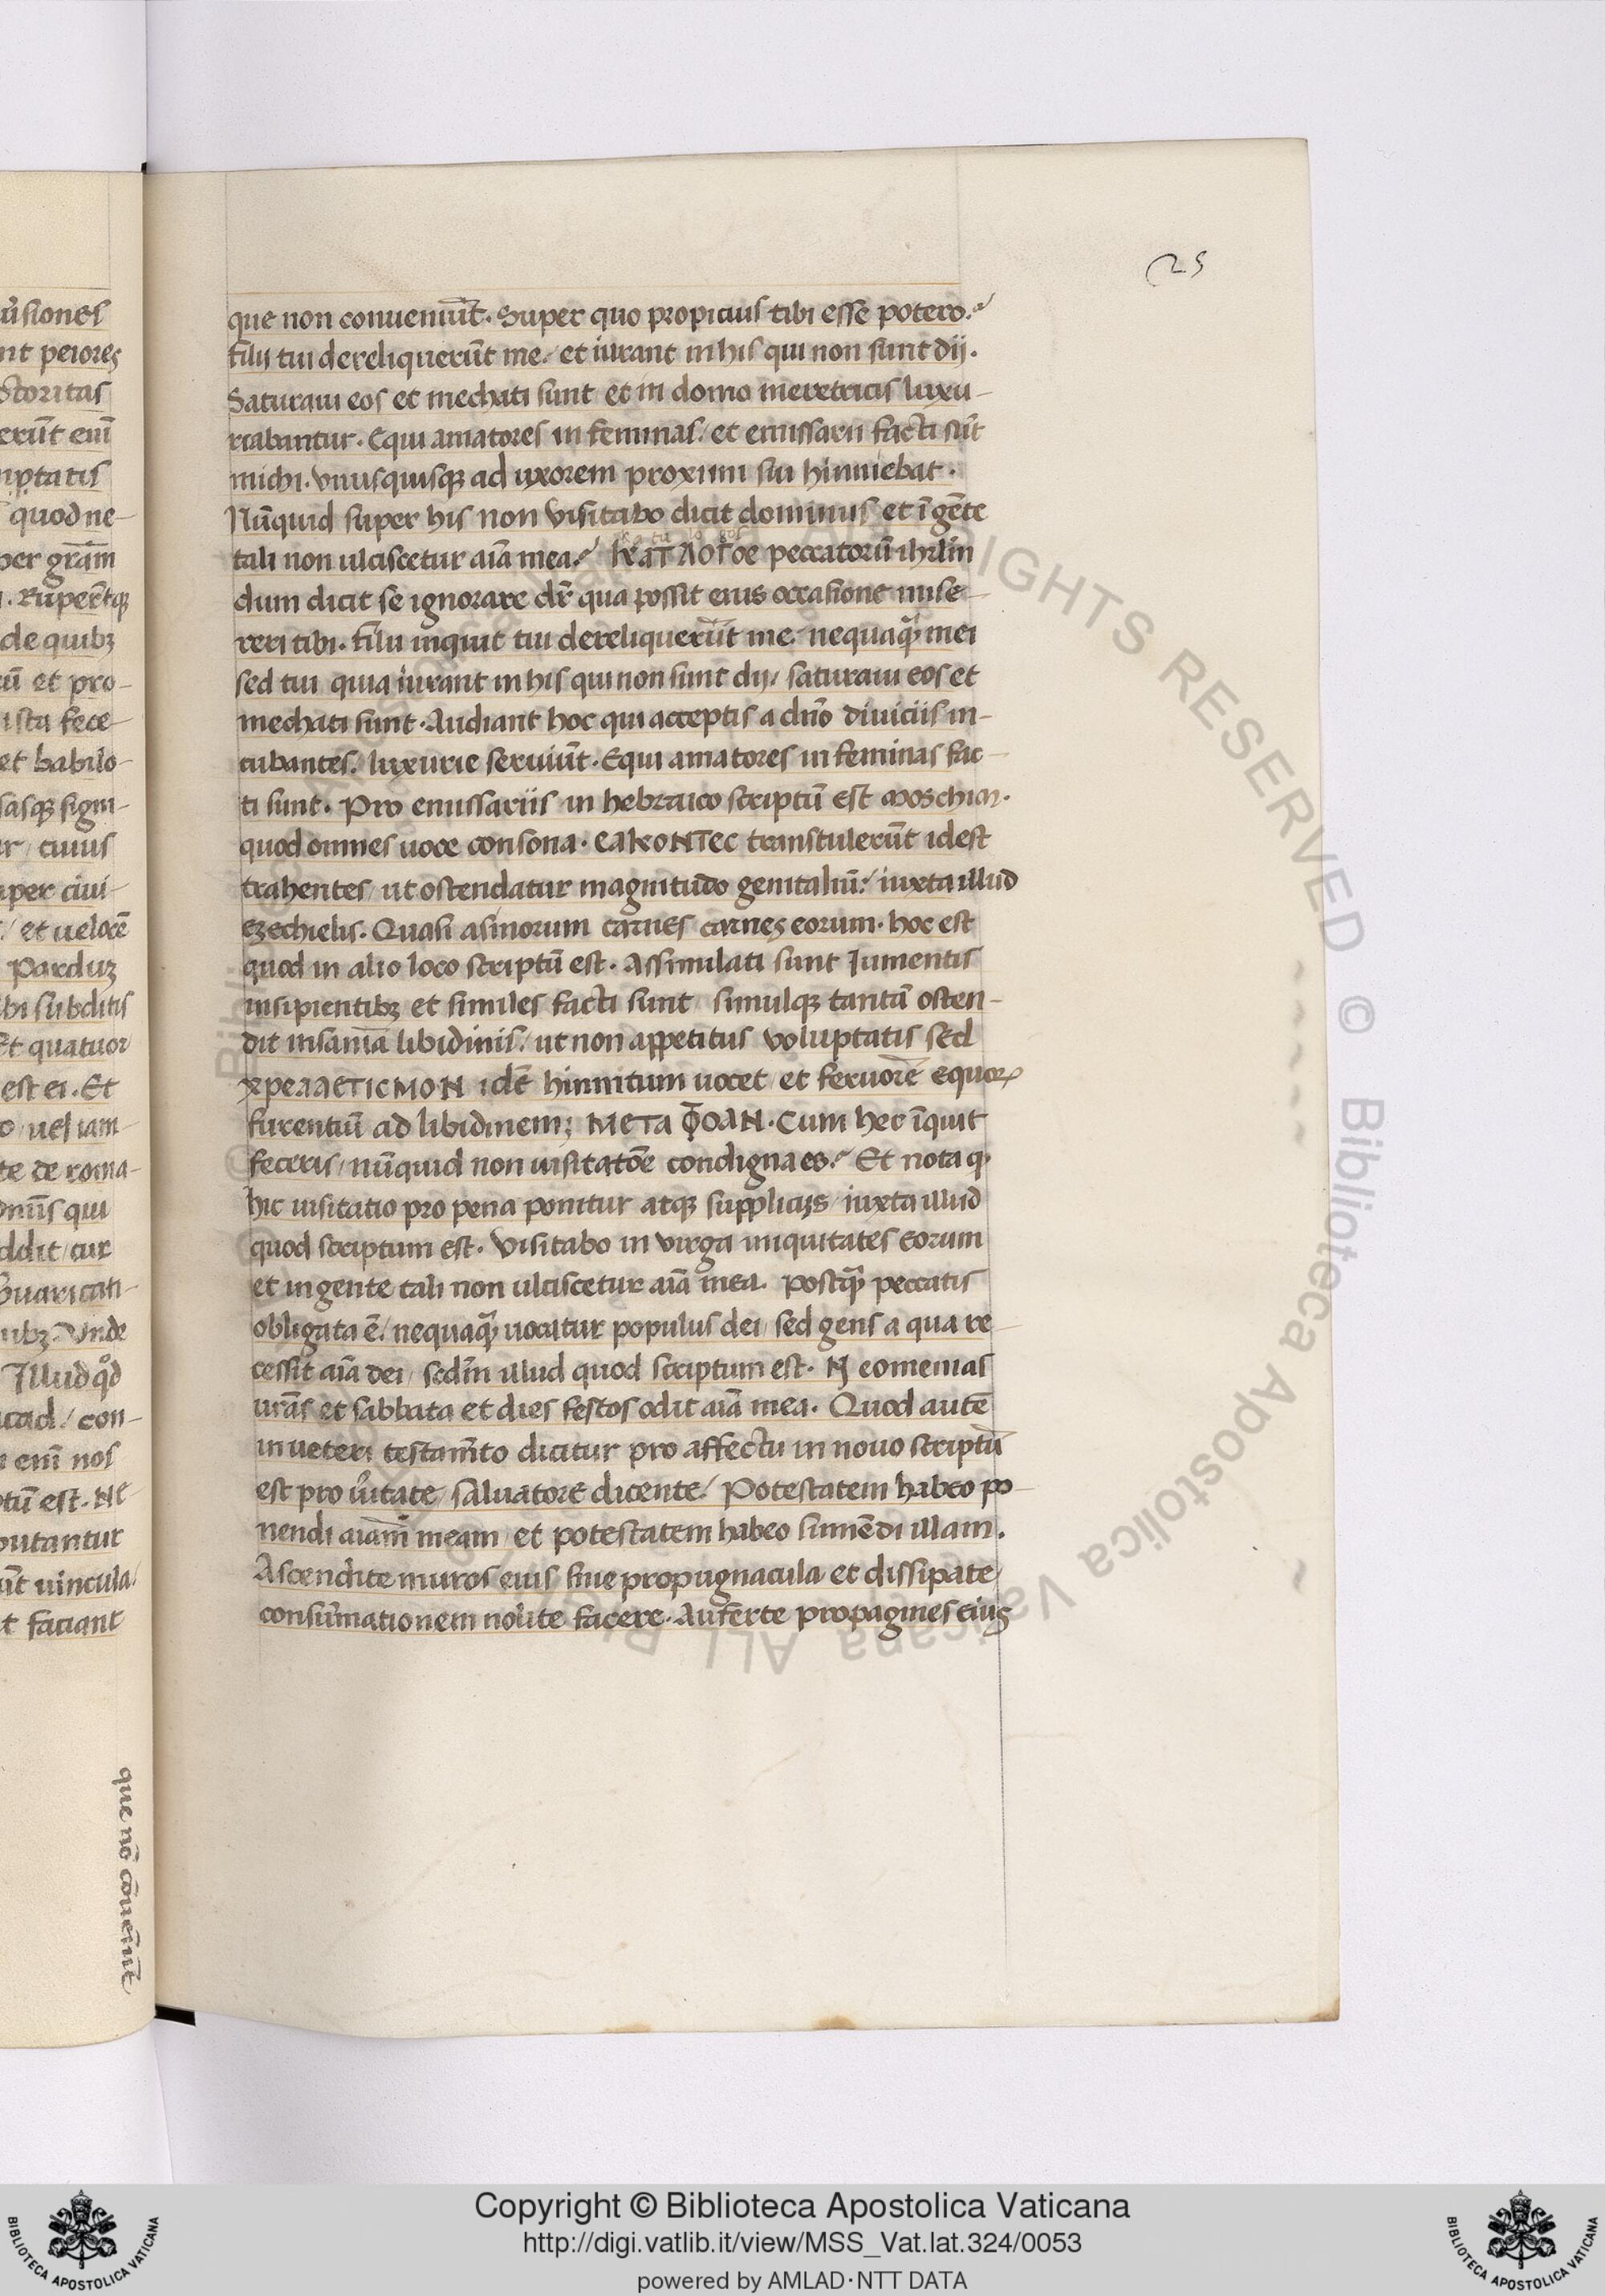 25
que non conueniūt. Super quo propicius tibi esse potero.
filij tui dereliquerūt me. et iurant in his qui non sunt dij.
Saturaui eos et mechati sunt et in domo meretricis luxu-
riabantur. Equi amatores in feminas. et emissarii facti sūt
michi. vnusquisqꝫ ad uxorem proximi sui hinniebat.
Nūquid super his non visitabo dicit dominus et ī gēte
tali non ulciscetur aīa mea. KaTAOΓoe peccatorū ihrlm̄
dum dicit se ignorare dr̄ qua possit eius occasione mise-
reri tibi. filii inquit tui dereliquerūt me. nequaqꝫ mei
sed tui quia iurant in his qui non sunt dij. saturaui eos et
mechati sunt. Audiant hoc qui acceptis a dn̄o diuiciis in-
cubantes. luxurie seruiūt. Equi amatores in feminas fac-
ti sunt. Pro emissariis in hebraico scriptū est moschim.
quod omnes uoce consona. eakoNTec transtulerūt idest
trahentes ut ostendatur magnitudo genitaliū. iuxta illud
ezechielis. Quasi asinorum carnes carnes eorum. hoc est
quod in alio loco scriptū est. Assimulati sunt Iumentis
insipientibꝫ et similes facti sunt simulqꝫ tantā osten-
dit insaniā libidinis. ut non appetitus voluptatis sed
xpeΛΛeTICMON idē hinnitum uocet et feruorē equoꝝ
furentiū ad libidinem; META ΦOAN. Cum hec īquit
feceris nūquid non uisitatōe condigna es. Et nota q
hic uisitatio pro pena ponitur atqꝫ supplicijs iuxta illud
quod scriptum est. Visitabo in virga iniquitates eorum
et in gente tali non ulciscetur aīa mea. postqꝫ peccatis
obligata ē. nequaqꝫ uocatur populus dei sed gens a qua re-
cessit aīa dei sedm̄ illud quod scriptum est. Neomenias
urās et sabbata et dies festos odit aīa mea. Quod autē
in ueteri testam̄to dicitur pro affectu in nouo scriptū
est pro u̓itate saluatore dicente. Potestatem habeo po-
nendi aiam̄ meam et potestatem habeo sumēdi illam.
Ascendite muros eius siue propugnacula et dissipate
consūmationem nolite facere. Auferte propagines eius
que nō cōueniūt
Copyright © Biblioteca Apostolica Vaticana
http://digi.vatlib.it/view/MSS_Vat.lat.324/0053
powered by AMLAD·NTT DATA